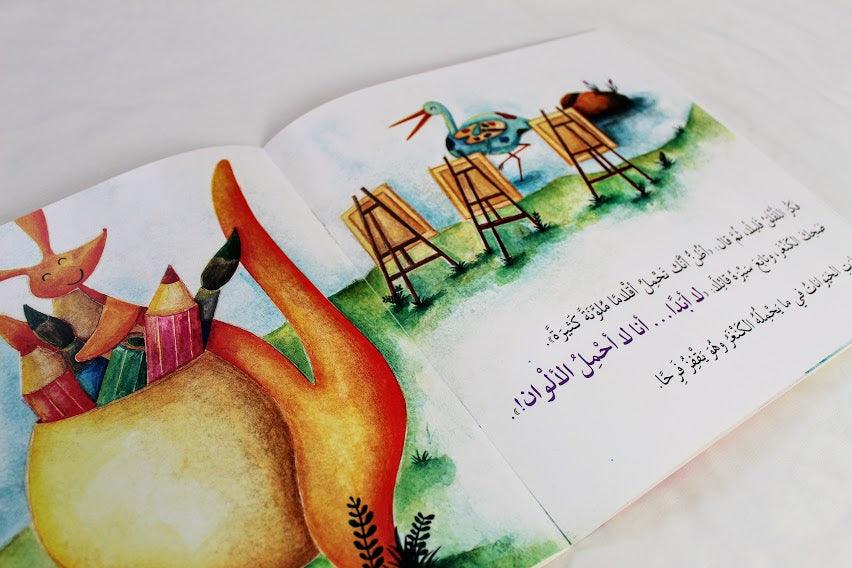 فكّر اللّقلق قليلًا، ثمّ قال: «أظنّ أنّك تحمل أقلامًا مُلوَّنَةً كَثيرَةً».
ضحك الكنغر، وتابع سيره قائلًا: «لا أبَدًا... أنا لا أحْمِلُ الألْوان!».
الحَيَواناتُ في ما يحْمِلُهُ الكَنْغَرُ وهُو يَقْفِزُ فَرِحًا.